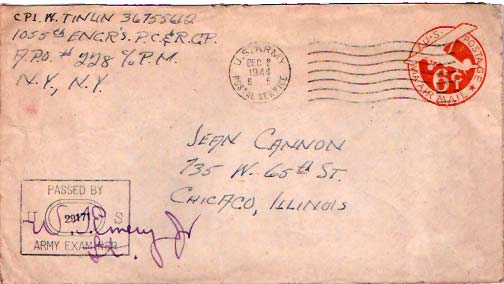 CPL. W. TINLIN 36755612
1055th ENGR'S. P.C.&R.GP.
A.P.O. # 228 c/o P.M.
N.Y., N.Y.
U.S. ARMY
DEC 2
1944
POSTAL SERVICE
U.S. POSTAGE
6¢
VIA AIR MAIL
JEAN CANNON
735 W. 65th ST.
CHICAGO, ILLINOIS
PASSED BY
U 29171 S
ARMY EXAMINER